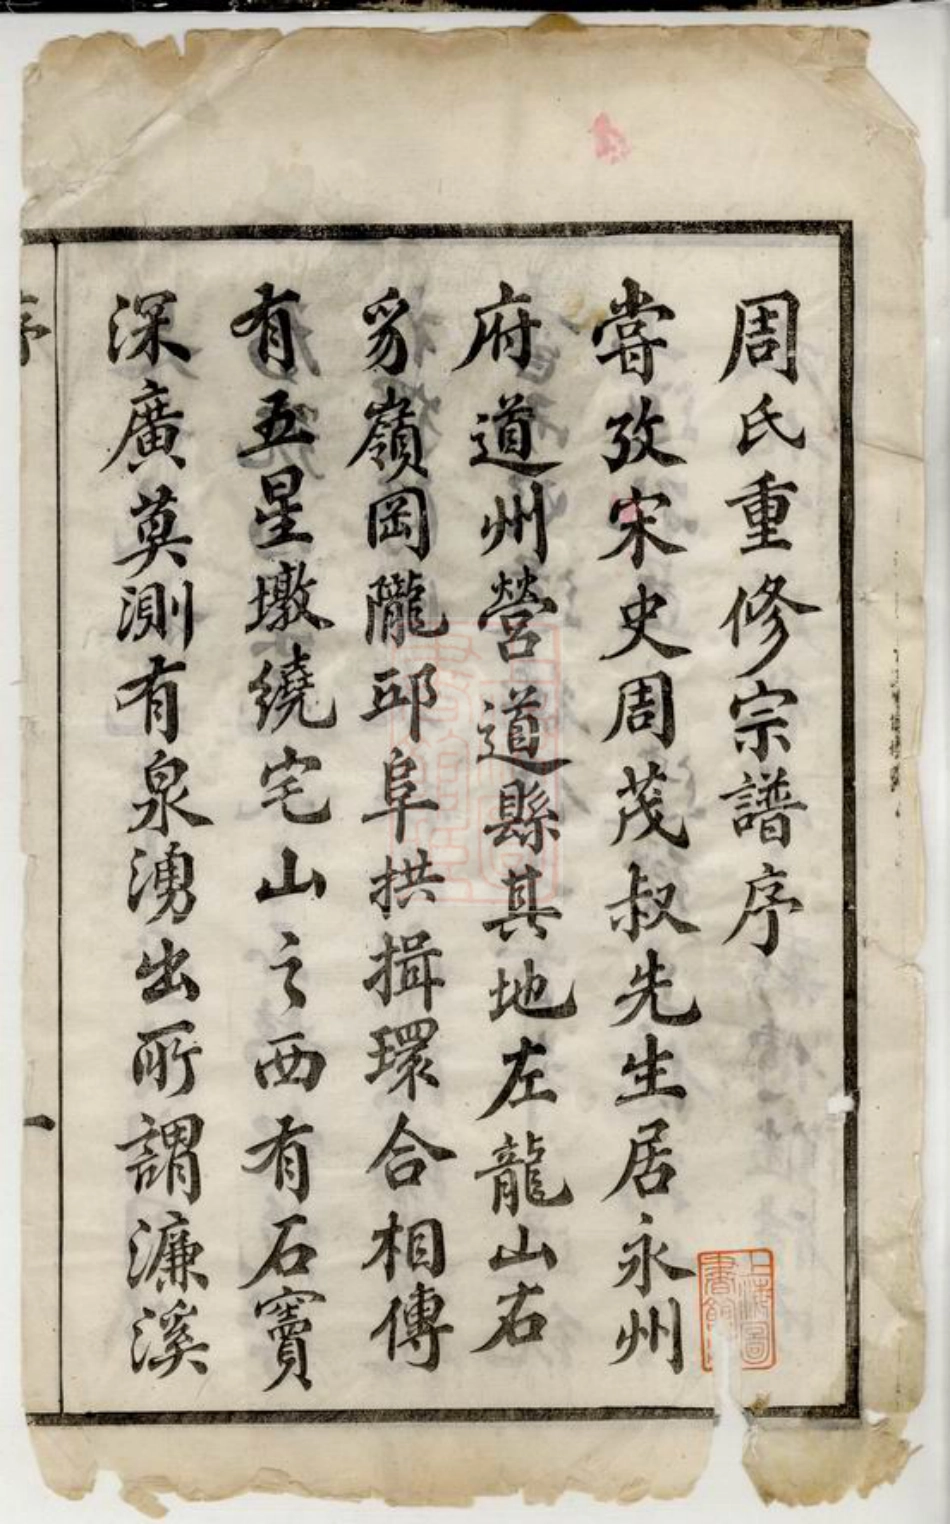 周氏重修宗譜序
嘗攷宋史周茂叔先生居永州
府道州營道縣其地左龍山右
豸嶺岡隴邱阜拱揖環合相傳
有五星墩繞宅山之西有石竇
深廣莫測有泉湧出所謂濂溪
序
一
上海圖書館藏